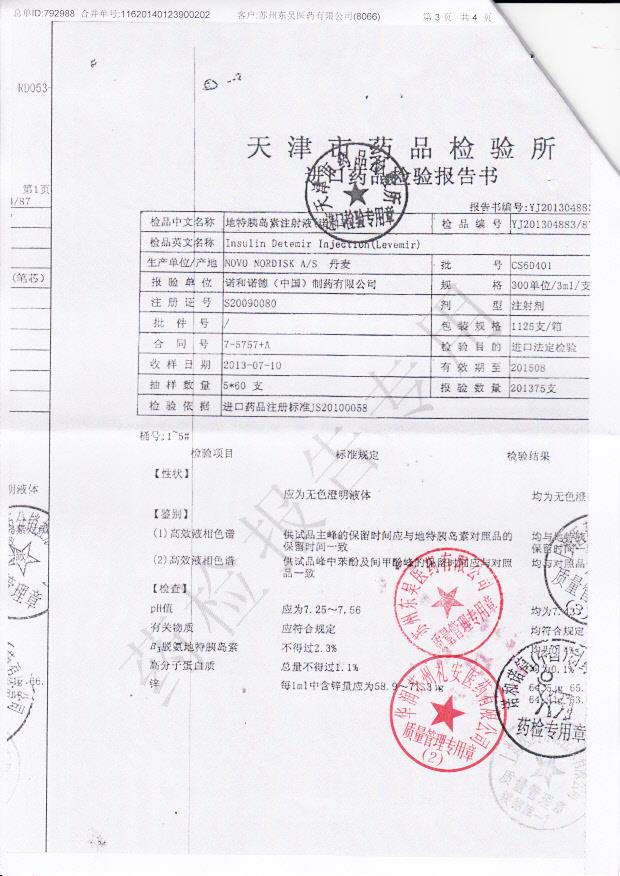 总单ID:792988 合并单号:11620140123900202 客户:苏州东吴医药有限公司(8066) 第 3 页 共 4 页
RD053-
天津市药品检验所
进口药品检验报告书
第1页
/87
报告书编号:YJ201304883
检品中文名称 地特胰岛素注射液 检品编号 YJ201304883/87
检品英文名称 Insulin Detemir Injection(Levemir)
生产单位/产地 NOVO NORDISK A/S 丹麦 批号 CS6D401
(笔芯)
报验单位 诺和诺德（中国）制药有限公司 规格 300单位/3ml/支
注册证号 S20090080 剂型 注射剂
批件号 / 包装规格 1125支/箱
合同号 7-5757+A 检验目的 进口法定检验
收样日期 2013-07-10 有效期至 201508
抽样数量 5*60 支 报验数量 201375支
检验依据 进口药品注册标准JS20100058
桶号:1~5#
检验项目 标准规定 检验结果
【性状】
明液体
应为无色澄明液体 均为无色澄
【鉴别】
(1)高效液相色谱 供试品主峰的保留时间应与地特胰岛素对照品的 均与地特胰
保留时间一致 保留时间一
(2)高效液相色谱 供试品峰中苯酚及间甲酚峰的保留时间应与对照 均与对照
品一致
【检查】
pH值 应为7.25~7.56 均为7.4
有关物质 应符合规定 均符合规定
脱氨地特胰岛素 不得过2.3%
高分子蛋白质 总量不得过1.1% 0.1%
锌 每1ml中含锌量应为58.9~71.3μg
天津市药品检验所
进口检验专用章
苏州东吴医药有限公司
质量管理专用章
华润苏州礼安医药有限公司
质量管理专用章
(2)
质量管理章
(3)
药检专用章
质量管理章
药检报告专用